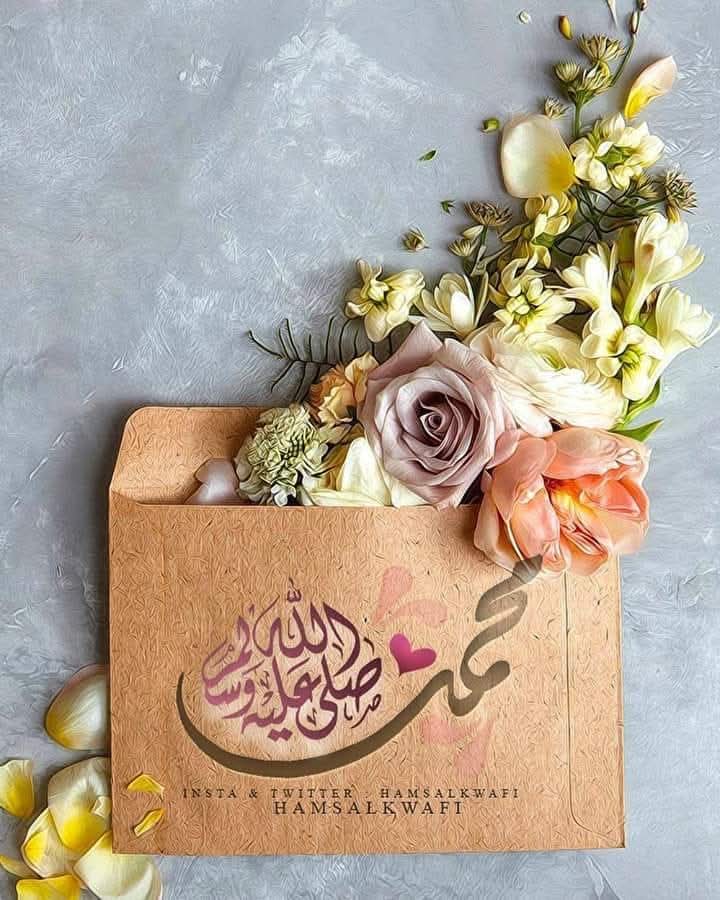 محمد
صلى الله عليه وسلم
INSTA & TWITTER : HAMSALKWAFI
HAMSALKWAFI